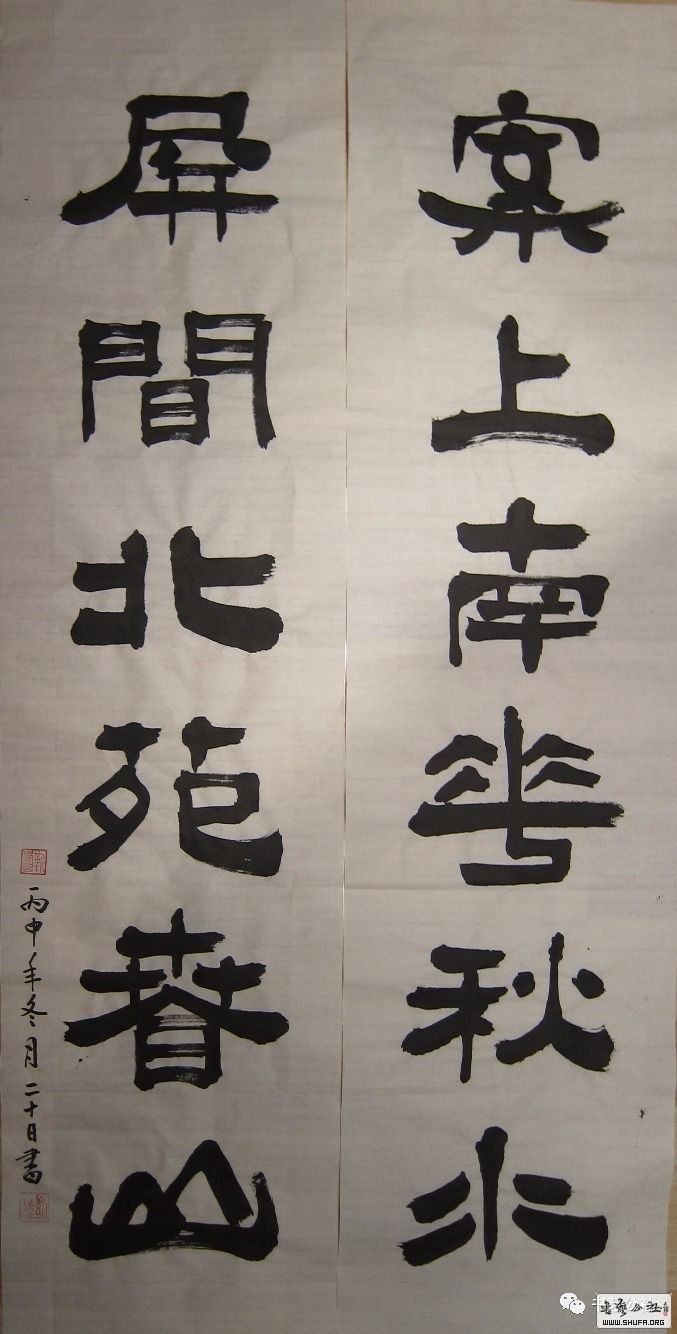 案上南華秋水
屏間北苑春山
丙申年冬月二十日書
WWW.SHUFA.ORG